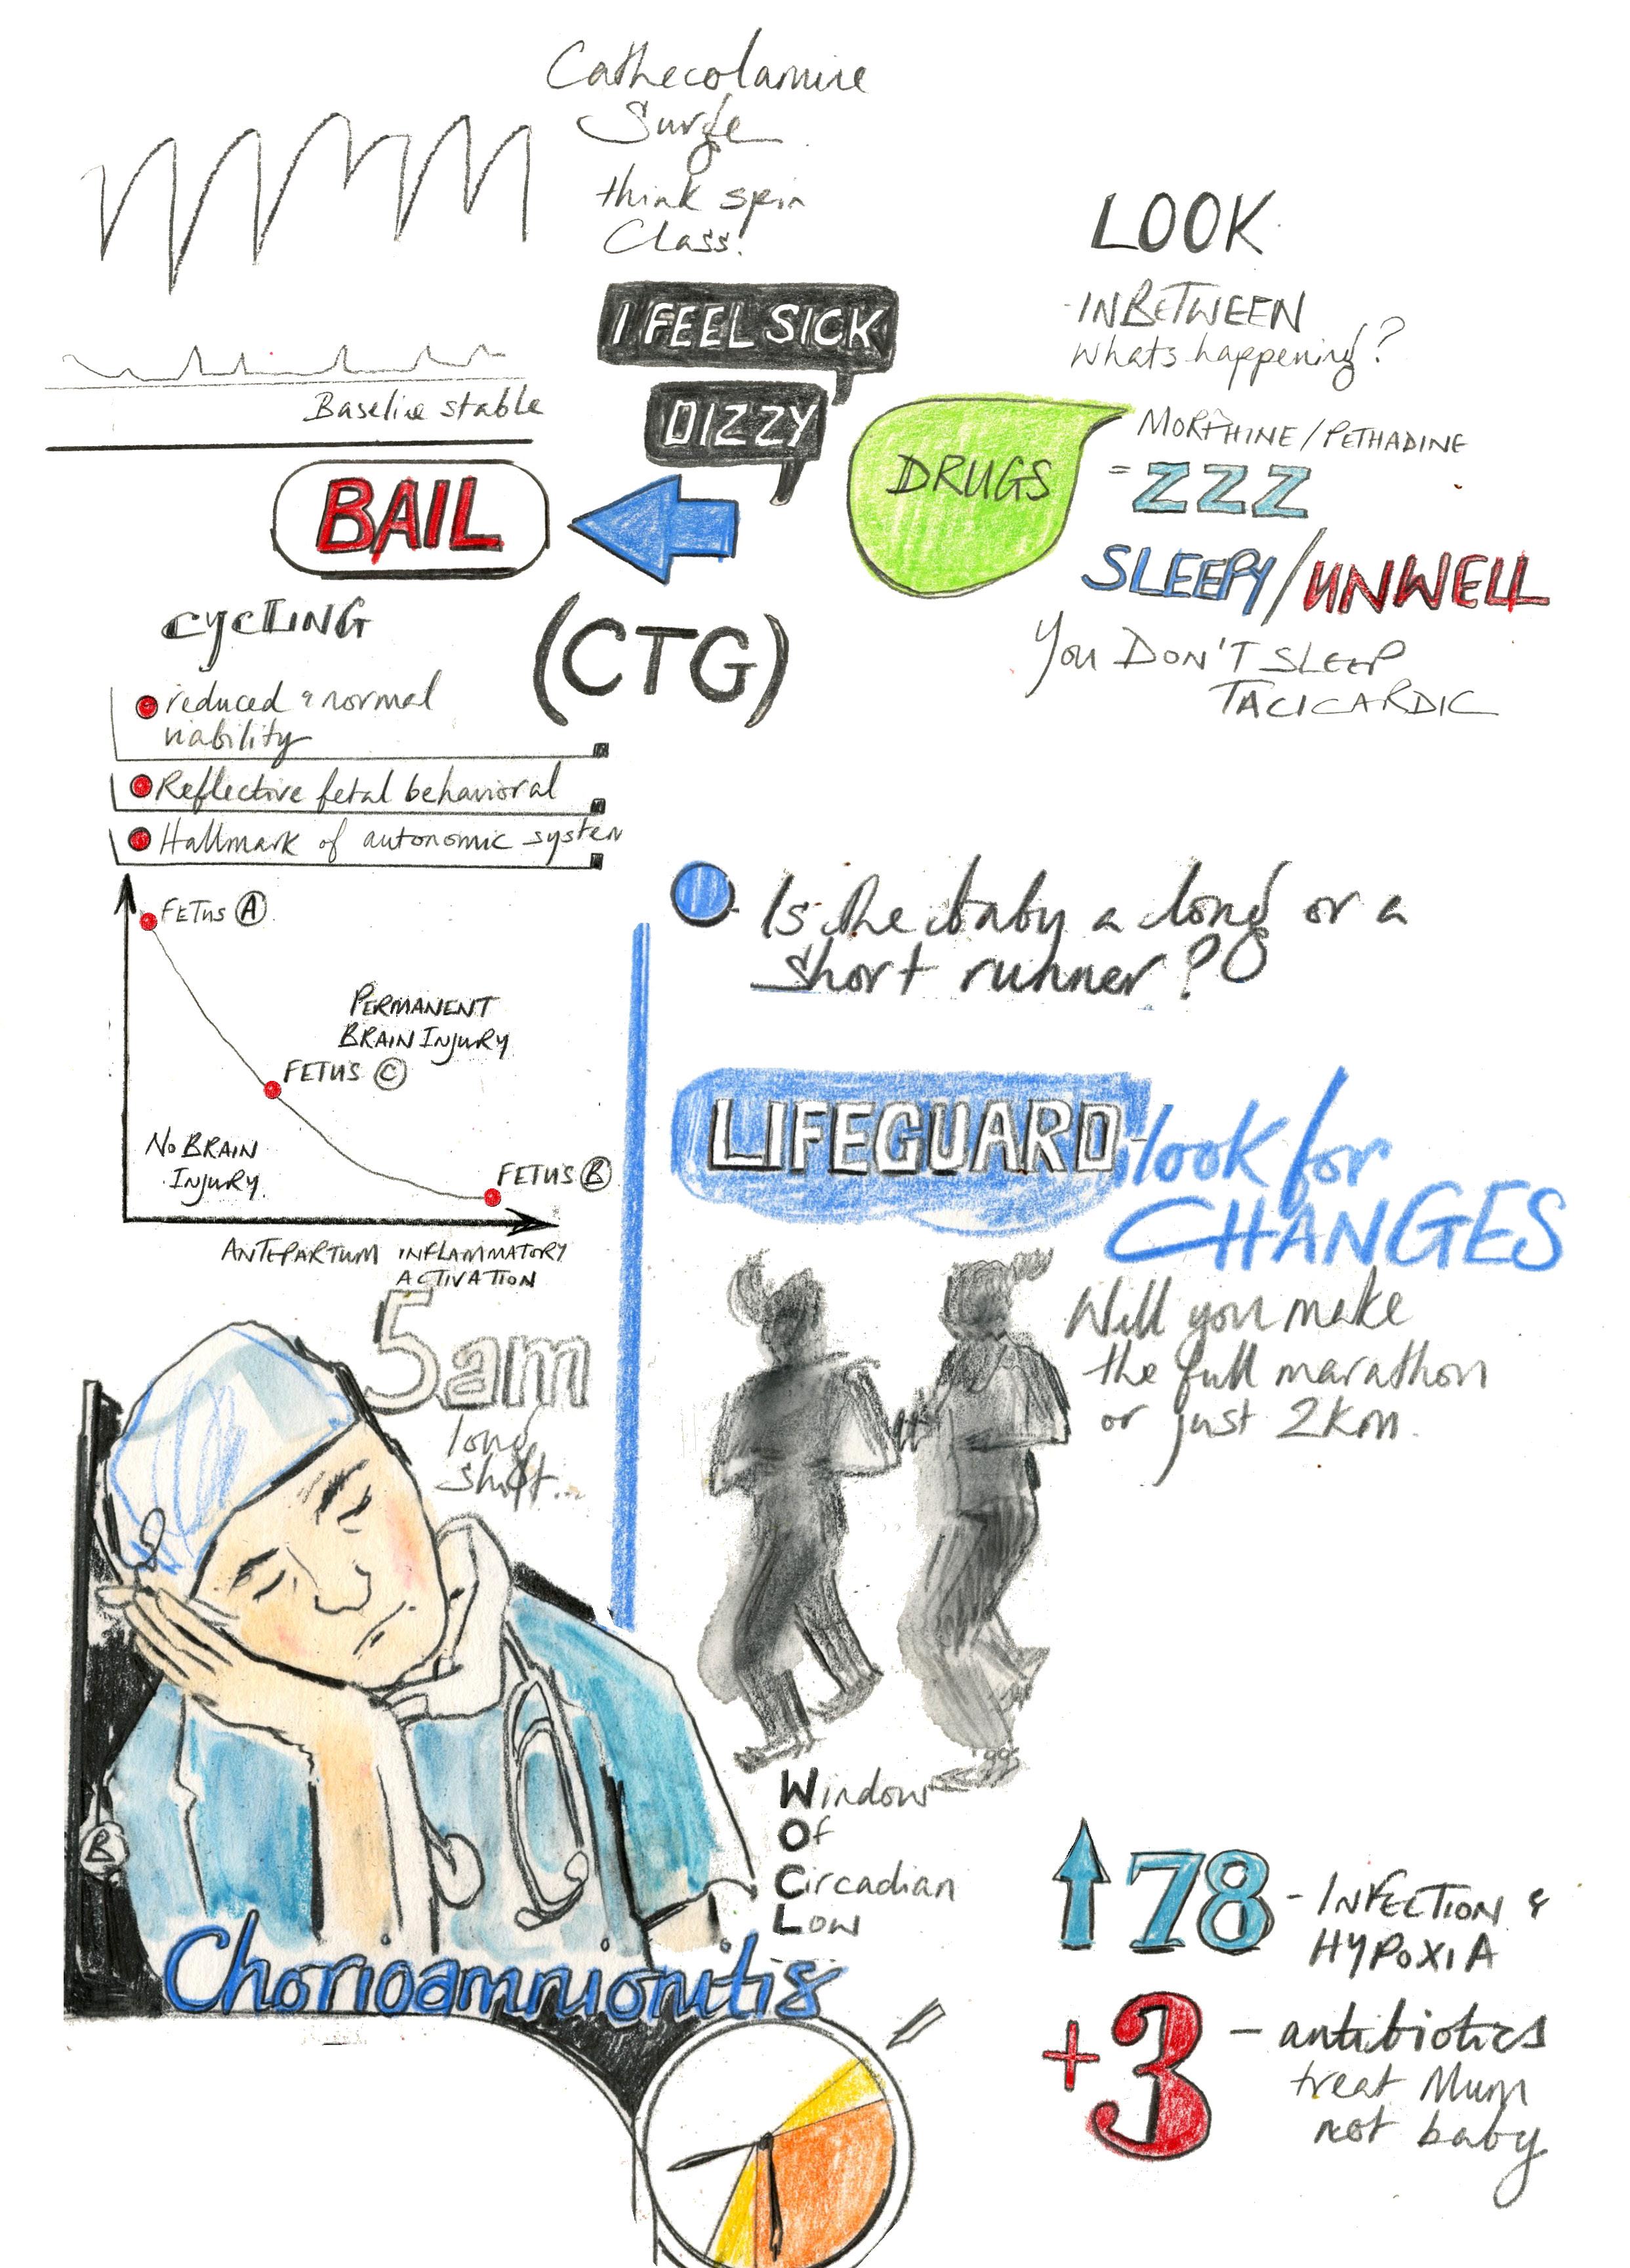 Cathecolamine
Surge
think spin
Class!
I FEEL SICK
DIZZY
Baseline stable
BAIL
(CTG)
LOOK
-INBETWEEN
whats happening?
DRUGS
MORPHINE/PETHADINE
= ZZZ
SLEEPY/UNWELL
You DON'T SLEEP
TACICARDIC
CYCLING
reduced & normal
viability
Reflective fetal behavioral
Hallmark of autonomic system
FETUS A
PERMANENT
BRAIN INJURY
FETUS C
NO BRAIN
INJURY.
FETUS B
ANTEPARTUM INFLAMMATORY
ACTIVATION
Is the baby a long or a
short runner?
LIFEGUARD-look for
CHANGES
Will you make
the full marathon
or just 2km.
5am
long
shift...
Window
Of
Circadian
Low
B
Chorioamnionitis
78 - INFECTION &
HYPOXIA
+3 - antibiotics
treat Mum
not baby